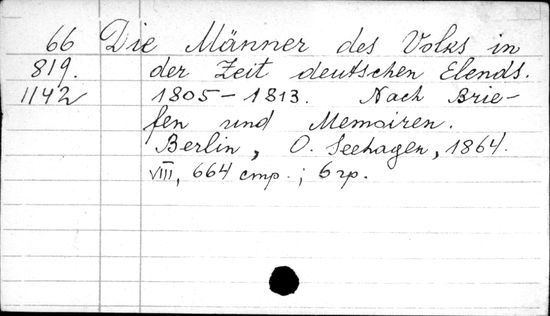 66 Die Männer des Volks in
819. der Zeit deutschen Elends.
1142 1805-1813. Nach Brie-
fen und Memoiren.
Berlin, O. Seehagen, 1864.
VIII, 664 cmp.; 6 гр.